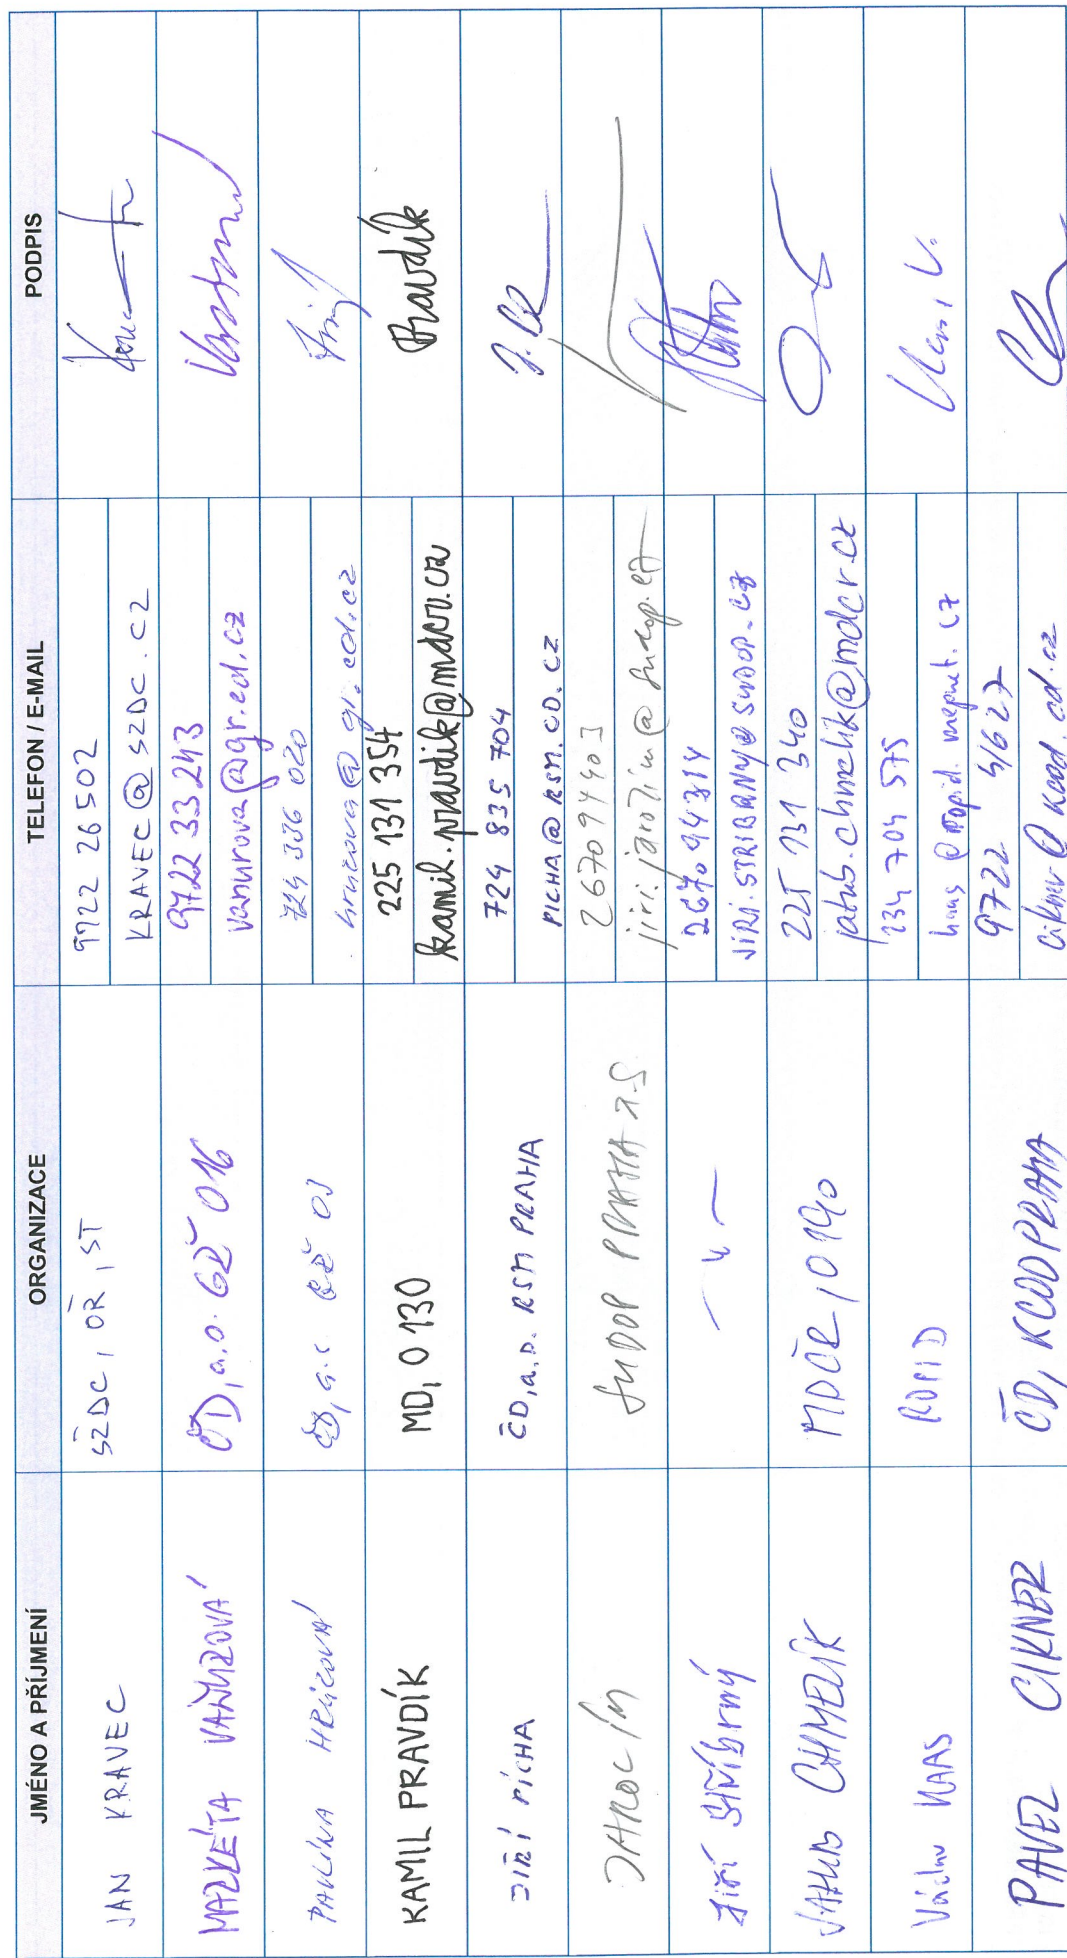 JMÉNO A PŘÍJMENÍ ORGANIZACE TELEFON / E-MAIL PODPIS
JAN KRAVEC SŽDC, OŘ, ST 9722 26502
KRAVEC@SZDC.CZ
MARKÉTA VAŇUROVÁ ČD, a.s. GŘ 016 9722 33 243
vanurova@gr.cd.cz
PAVLÍNA HRŮZOVÁ ČD, a.s. GŘ 03 724 336 020
hruzova@gr.cd.cz
KAMIL PRAVDÍK MD, O 130 225 131 354 Pravdík
kamil.pravdik@mdcr.cz
JIŘÍ PÍCHA ČD, a.s. RSM PRAHA 724 835 704
PICHA@RSM.CD.CZ
JAROLÍM SUDOP PRAHA a.s. 267094403
jiri.jarolim@sudop.cz
Jiří Stříbrný — " — 267094314
JIRI.STRIBRNY@SUDOP.CZ
JAKUB CHMELÍK MDČR, O 190 225 131 340
jakub.chmelik@mdcr.cz
Václav HAAS ROPID 234 704 575
PAVEL CIKNER ČD, KCOD PRAHA 9722 41627
cikner@kcod.cd.cz